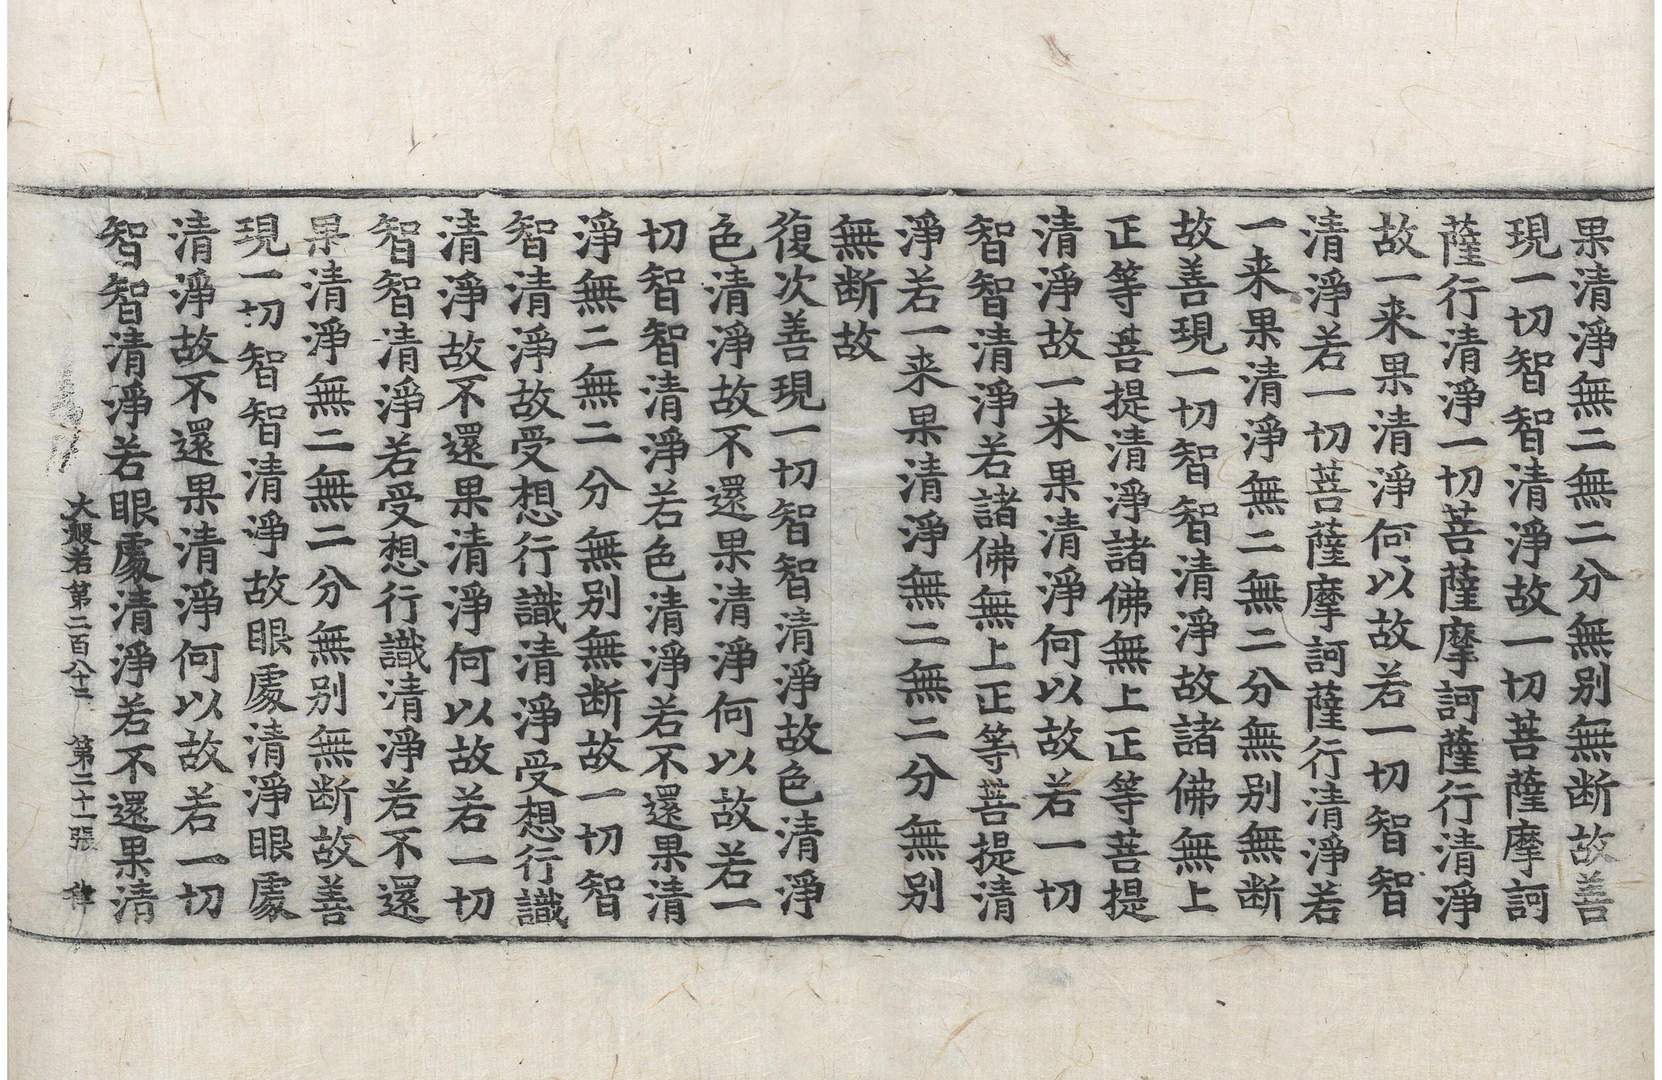 果清淨無二無二分無别無断故善
現一切智智清淨故一切菩薩摩訶
薩行清淨一切菩薩摩訶薩行清淨
故一来果清淨何以故若一切智智
清淨若一切菩薩摩訶薩行清淨若
一来果清淨無二無二分無别無断
故善現一切智智清淨故諸佛無上
正等菩提清淨諸佛無上正等菩提
清淨故一来果清淨何以故若一切
智智清淨若諸佛無上正等菩提清
淨若一来果清淨無二無二分無别
無断故
復次善現一切智智清淨故色清淨
色清淨故不還果清淨何以故若一
切智智清淨若色清淨若不還果清
淨無二無二分無别無断故一切智
智清淨故受想行識清淨受想行識
清淨故不還果清淨何以故若一切
智智清淨若受想行識清淨若不還
果清淨無二無二分無别無断故善
現一切智智清淨故眼處清淨眼處
清淨故不還果清淨何以故若一切
智智清淨若眼處清淨若不還果清
大般若第二百八十二 第二十一張